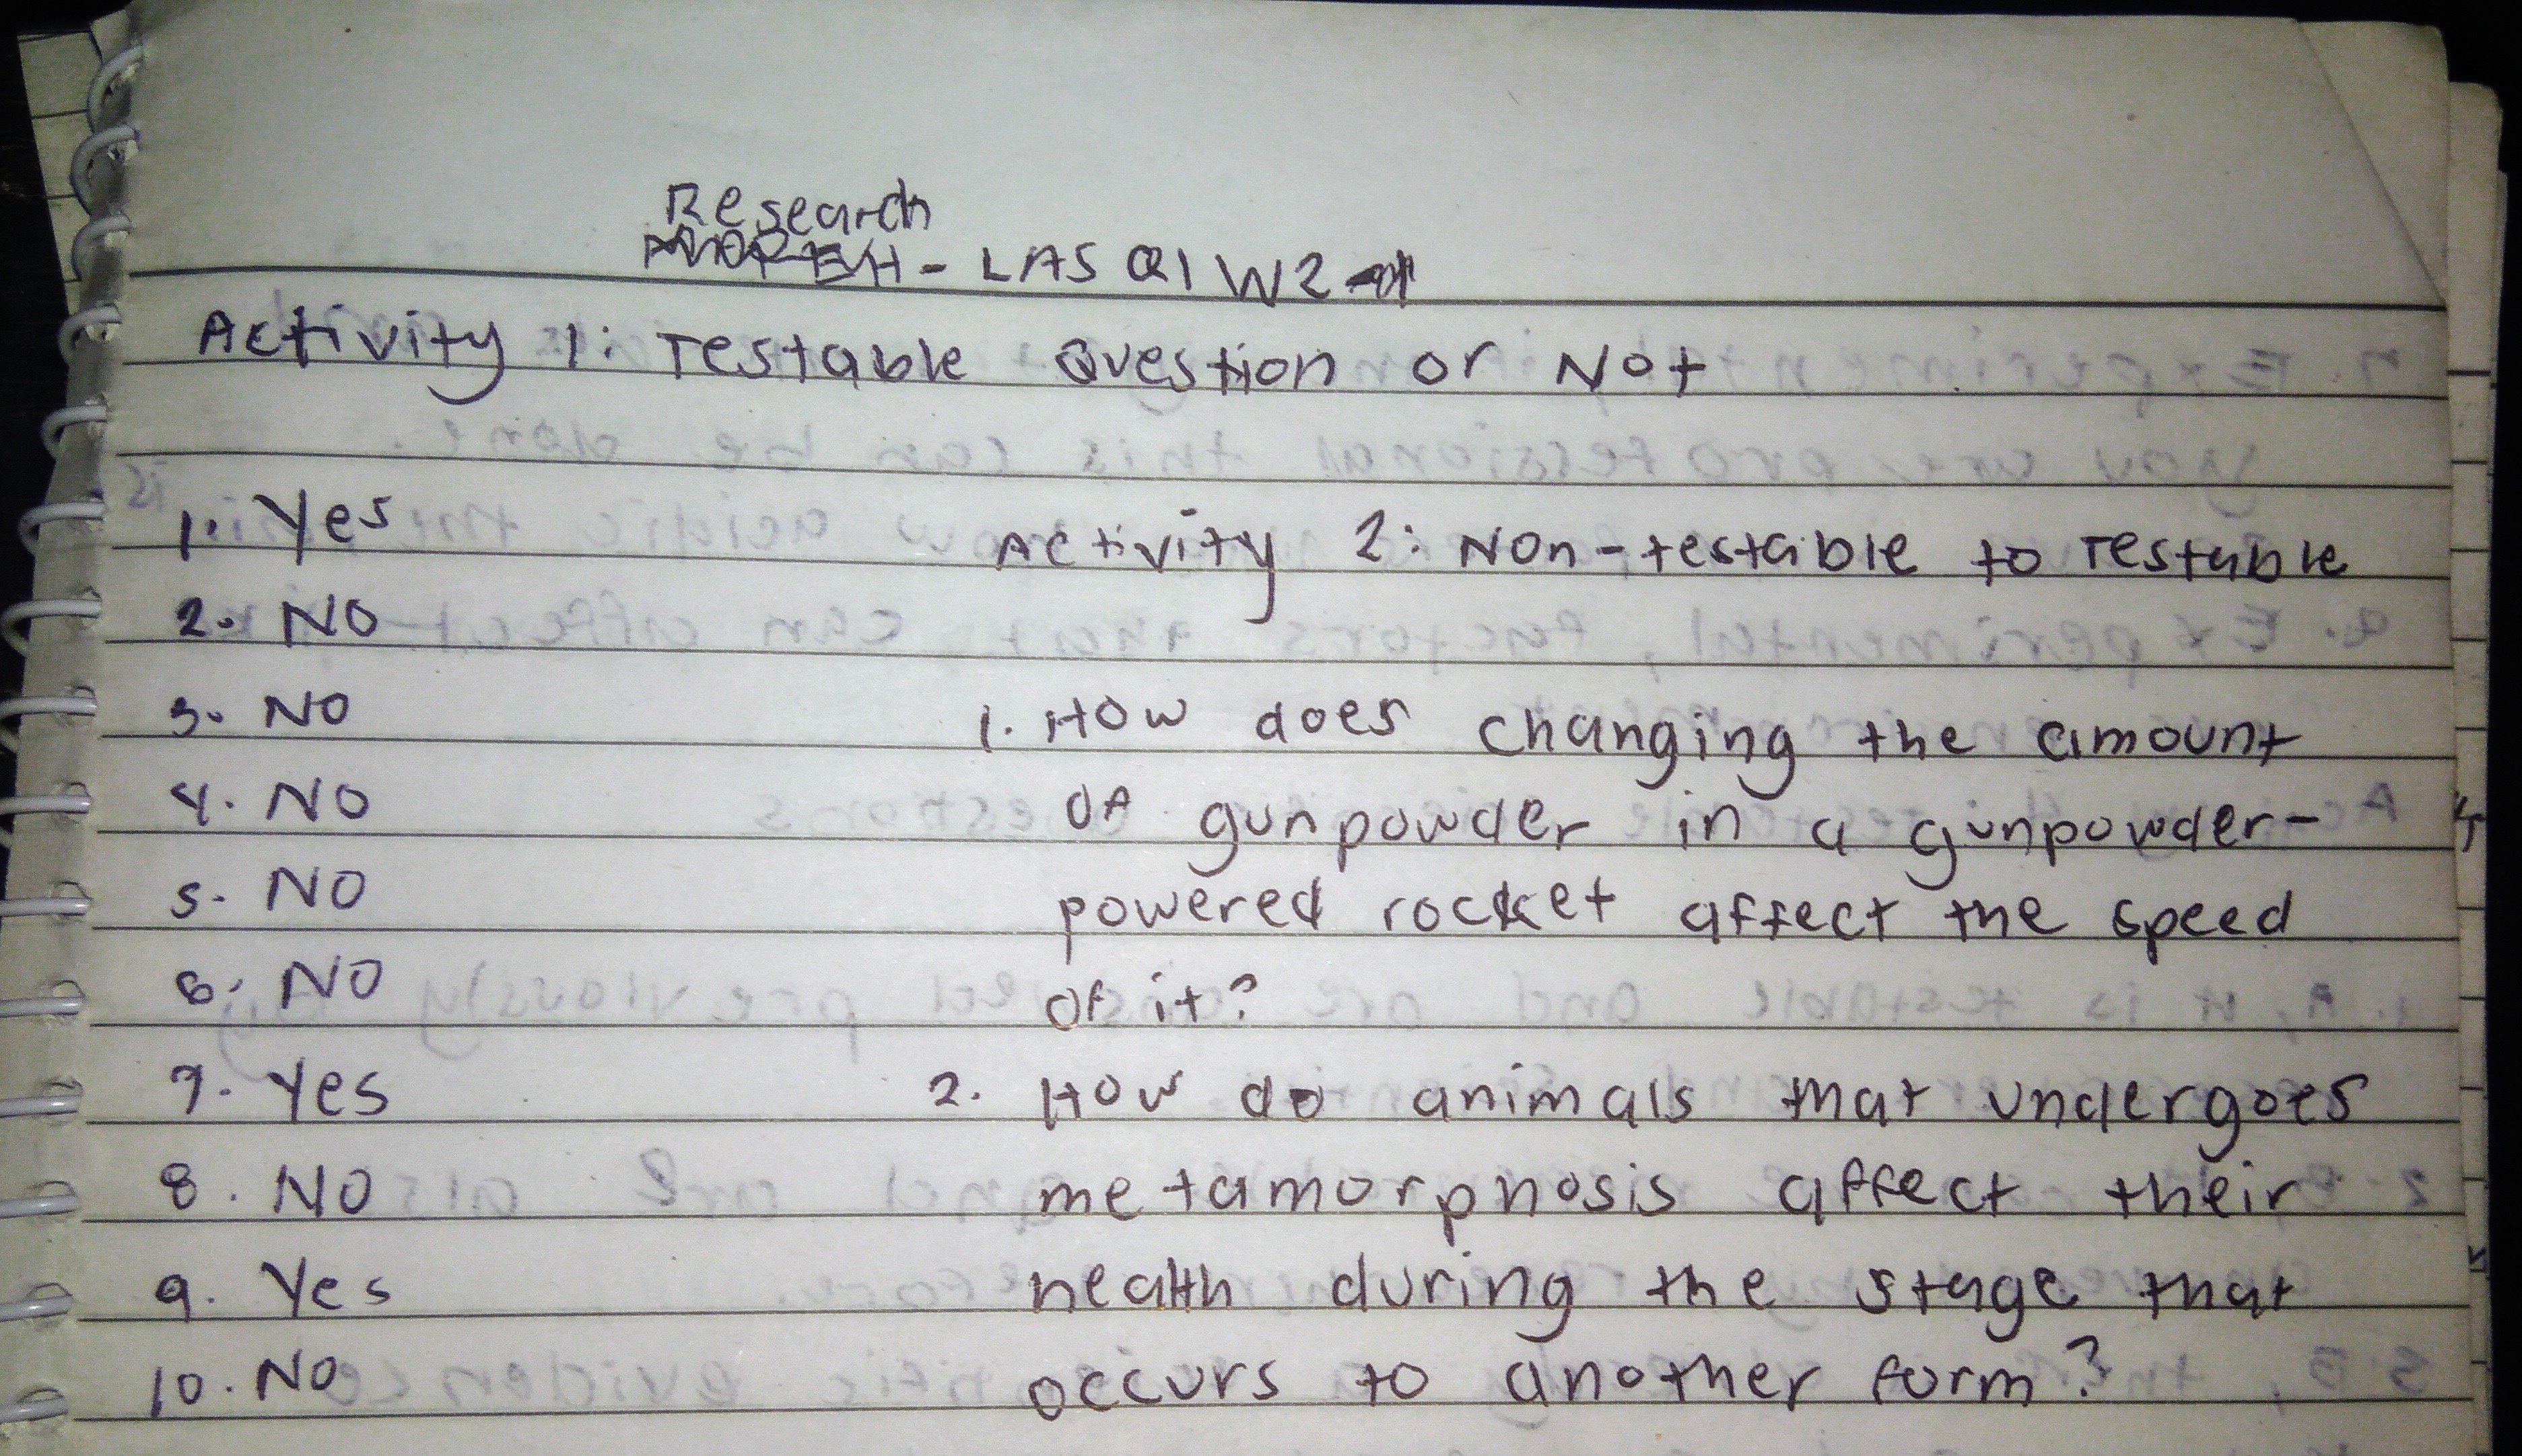 Research
- LAS Q1 W2
Activity 1: Testable Question or Not
1. Yes
2. NO
3. NO
4. NO
5. NO
6. NO
7. Yes
8. NO
9. Yes
10. NO
Activity 2: Non-testable to Testable
1. How does changing the amount
of gunpowder in a gunpowder-
powered rocket affect the speed
of it?
2. How do animals that undergoes
metamorphosis affect their
health during the stage that
occurs to another form?